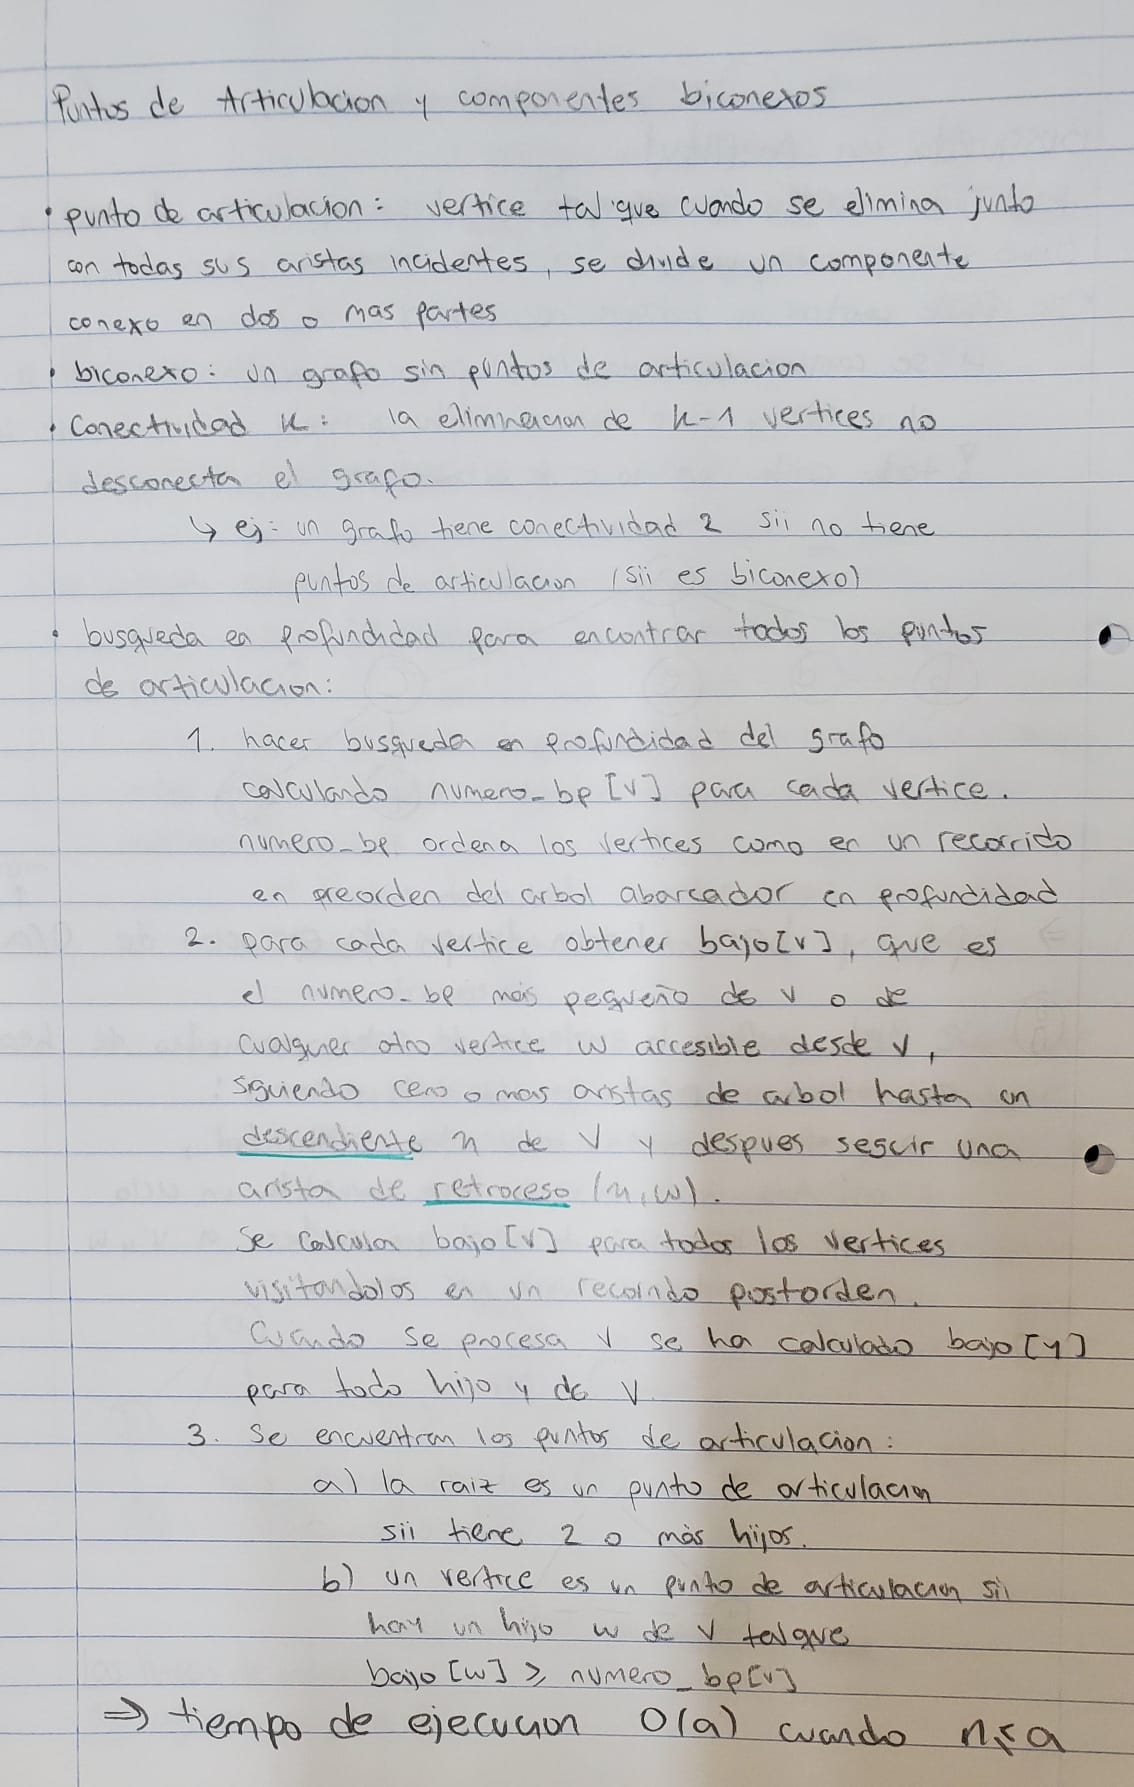 Puntos de Articulacion y componentes biconexos
• punto de articulacion: vertice tal que cuando se elimina junto
con todas sus aristas incidentes, se divide un componente
conexo en dos o mas partes
• biconexo: un grafo sin puntos de articulacion
• Conectividad k: la eliminacion de k-1 vertices no
desconecta el grafo.
↳ ej: un grafo tiene conectividad 2 sii no tiene
puntos de articulacion (sii es biconexo)
• busqueda en profundidad para encontrar todos los puntos
de articulacion:
1. hacer busqueda en profundidad del grafo
calculando numero_bp [v] para cada vertice.
numero_bp ordena los vertices como en un recorrido
en preorden del arbol abarcador en profundidad
2. para cada vertice obtener bajo[v], que es
el numero_bp más pequeño de v o de
cualquier otro vertice w accesible desde v,
siguiendo cero o mas aristas de arbol hasta un
descendiente n de v y despues seguir una
arista de retroceso (n,w).
Se calcula bajo[v] para todos los vertices
visitandolos en un recorrido postorden.
Cuando se procesa v se ha calculado bajo[y]
para todo hijo y de v
3. Se encuentran los puntos de articulacion:
a) la raiz es un punto de articulacion
sii tiene 2 o más hijos.
b) un vertice es un punto de articulacion sii
hay un hijo w de v tal que
bajo[w] ⩾ numero_bp[v]
⇒ tiempo de ejecucion O(a) cuando n⩽a